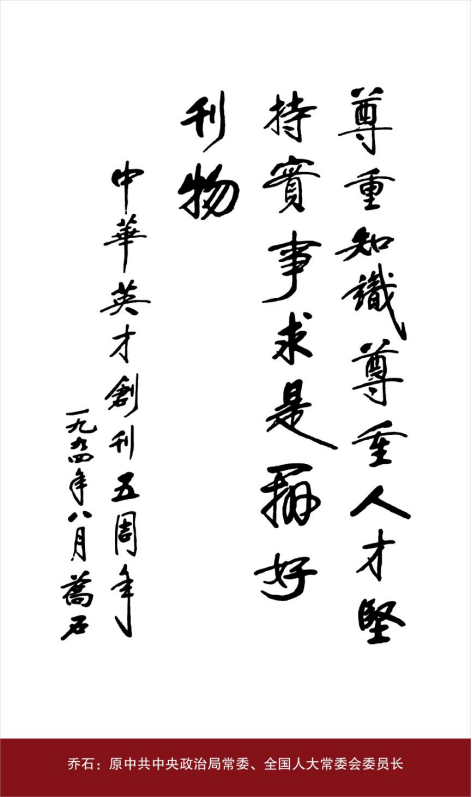 尊重知識尊重人才堅
持實事求是辦好
刊物
中華英才創刊五周年
一九九四年八月喬石
乔石：原中共中央政治局常委、全国人大常委会委员长